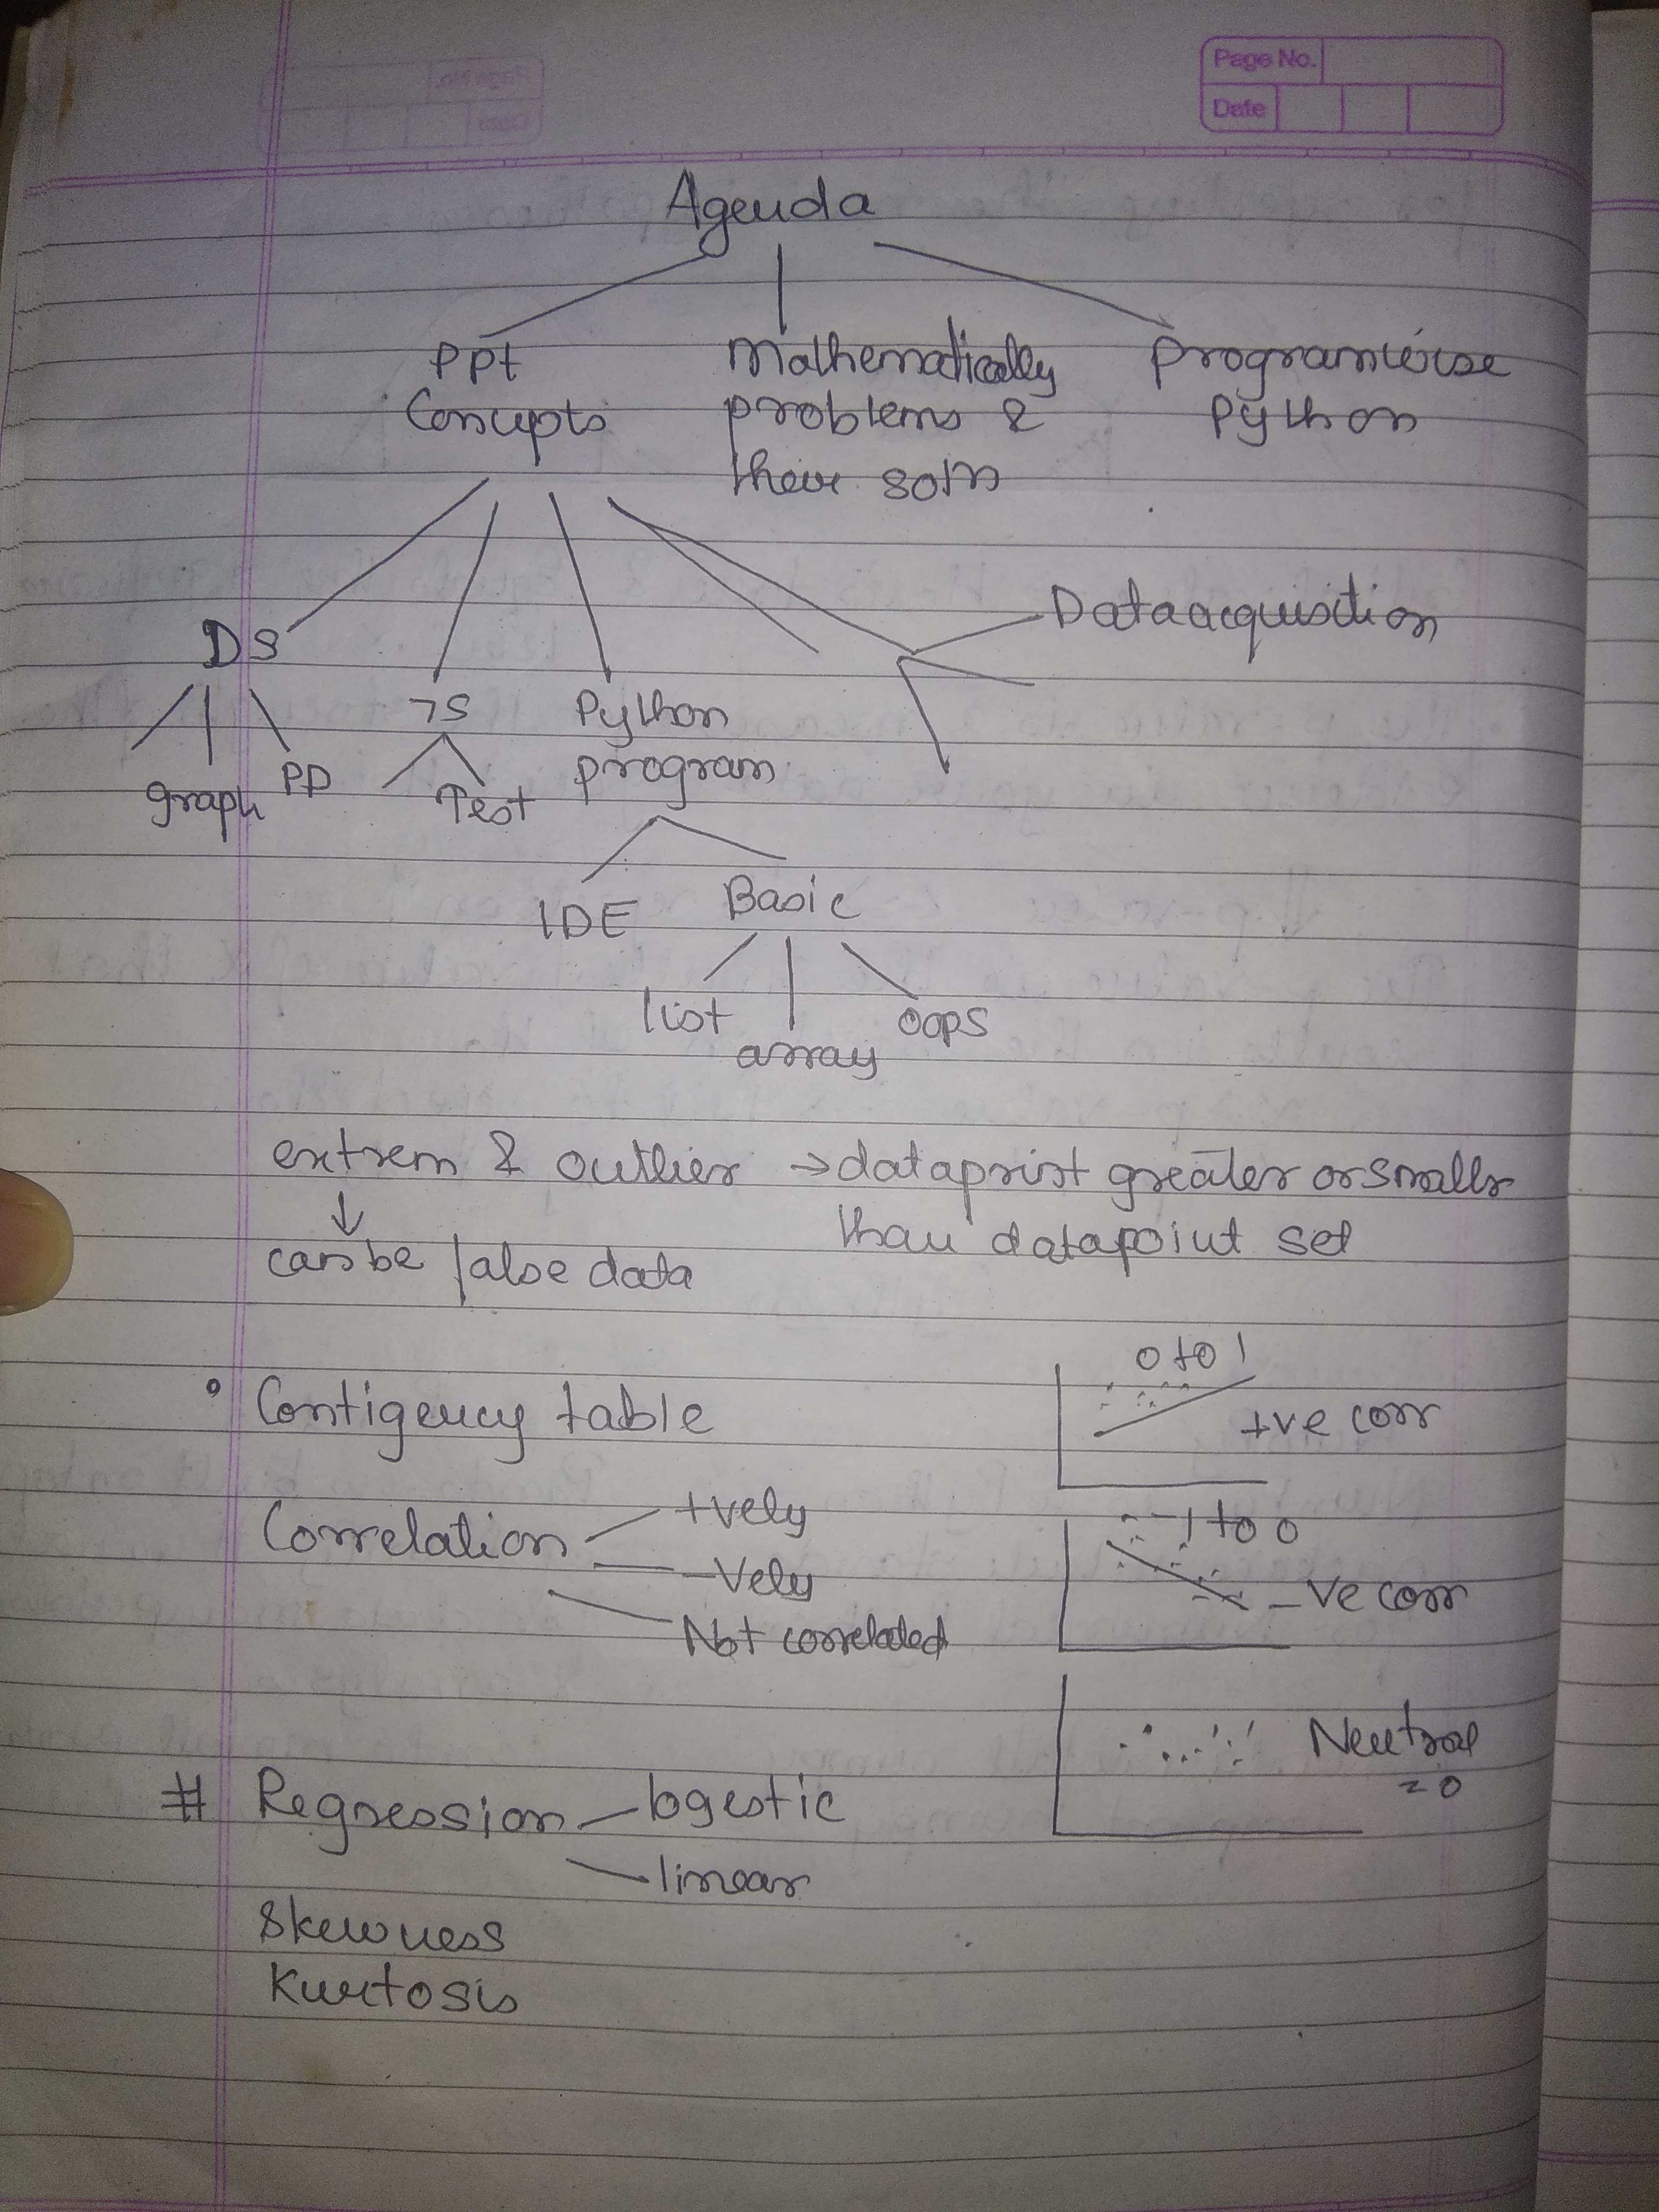 Page No.
Date
Agenda
PPt
Concepts
Mathematically
problems &
their soln
Programwise
Python
Dataacquisition
DS
graph
PD
7S
Test
Python
program
IDE
Basic
list
array
oops
extrem & outlier → dataprist greater or smaller
than datapoint set
↓
can be false data
Contigency table
0 to 1
+ve corr
Correlation
+vely
-Vely
Not correlated
-1 to 0
-Ve corr
Neutral
= 0
# Regression
logestic
linear
Skewness
Kurtosis